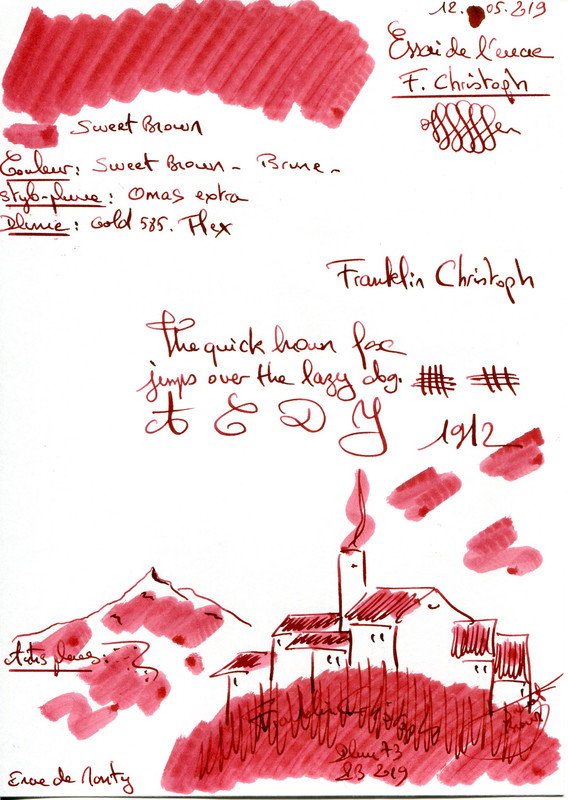 12. 05. 2019
Essai de l'encre
F. Christoph
Sweet Brown
Couleur: Sweet Brown - Brune -
stylo-plume: Omas extra
Plume: Gold 585. Flex
Franklin Christoph
The quick brown fox
jumps over the lazy dog.
A E D Y
1912
Franklin Christoph
Plume
2019
Encre de